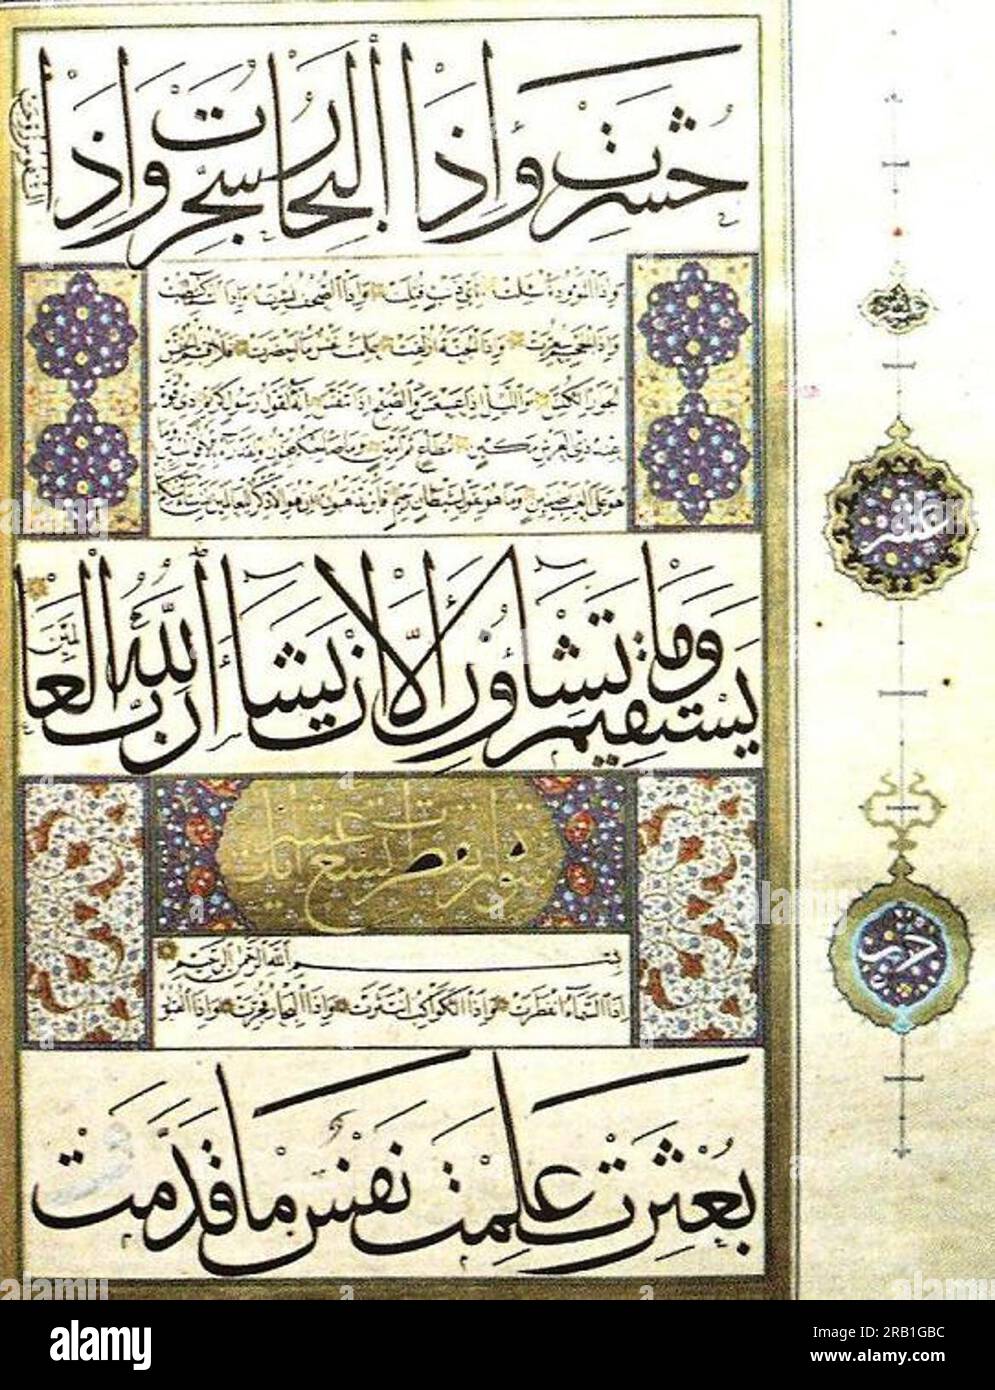 حُشِرَتْ وَإِذَا الْبِحَارُ سُجِّرَتْ وَإِذَا النفوس زوجت
وَإِذَا الْمَوْؤُدَةُ سُئِلَتْ بِأَيِّ ذَنْبٍ قُتِلَتْ وَإِذَا الصُّحُفُ نُشِرَتْ وَإِذَا السَّمَاءُ كُشِطَتْ
وَإِذَا الْجَحِيمُ سُعِّرَتْ وَإِذَا الْجَنَّةُ أُزْلِفَتْ عَلِمَتْ نَفْسٌ مَا أَحْضَرَتْ فَلَا أُقْسِمُ بِالْخُنَّسِ
الْجَوَارِ الْكُنَّسِ وَاللَّيْلِ إِذَا عَسْعَسَ وَالصُّبْحِ إِذَا تَنَفَّسَ إِنَّهُ لَقَوْلُ رَسُولٍ كَرِيمٍ ذِي قُوَّةٍ
عِنْدَ ذِي الْعَرْشِ مَكِينٍ مُطَاعٍ ثَمَّ أَمِينٍ وَمَا صَاحِبُكُمْ بِمَجْنُونٍ وَلَقَدْ رَآهُ بِالْأُفُقِ الْمُبِينِ وَمَا
هُوَ عَلَى الْغَيْبِ بِضَنِينٍ وَمَا هُوَ بِقَوْلِ شَيْطَانٍ رَجِيمٍ فَأَيْنَ تَذْهَبُونَ إِنْ هُوَ إِلَّا ذِكْرٌ لِلْعَالَمِينَ لِمَنْ شَاءَ مِنْكُمْ أَنْ
عشر
يَسْتَقِيمَ وَمَا تَشَاؤُنَ إِلَّا أَنْ يَشَاءَ اللَّهُ رَبُّ الْعَالَمِينَ
سورة انفطرت تسع عشر ايات
بِسْمِ اللَّهِ الرَّحْمَنِ الرَّحِيمِ
حزب
إِذَا السَّمَاءُ انْفَطَرَتْ وَإِذَا الْكَوَاكِبُ انْتَثَرَتْ وَإِذَا الْبِحَارُ فُجِّرَتْ وَإِذَا الْقُبُورُ
بُعْثِرَتْ عَلِمَتْ نَفْسٌ مَا قَدَّمَتْ
alamy
Image ID: RB1GBC
www.alamy.com